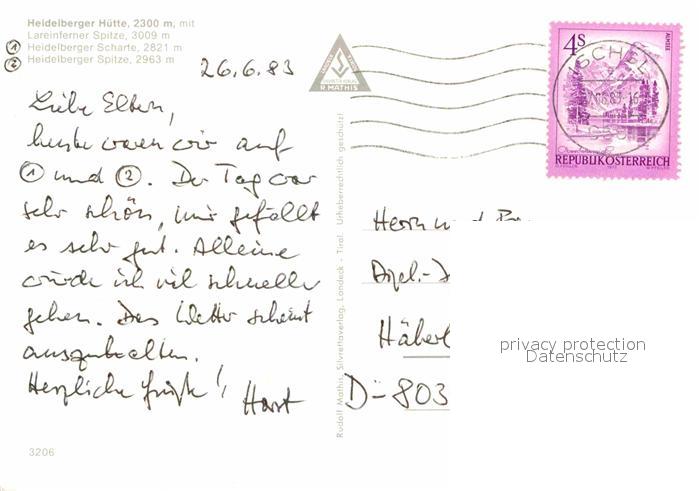 Heidelberger Hütte, 2300 m, mit
Lareinferner Spitze, 3009 m
① Heidelberger Scharte, 2821 m
② Heidelberger Spitze, 2963 m
26.6.83
Liebe Eltern,
heute waren wir auf
① und ②. Der Tag war
sehr schön, mir gefällt
es sehr gut. Alleine
würde ich viel schneller
gehen. Das Wetter scheint
auszuhalten.
Herzliche Grüße! Horst
3206
R. MATHIS
Rudolf Mathis, Silvrettaverlag, Landeck - Tirol. Urheberrechtlich geschützt!
4S
ALMSEE
ISCHGL
REPUBLIK ÖSTERREICH
Herrn und
Dipl.-
Häberl
D-803
privacy protection
Datenschutz